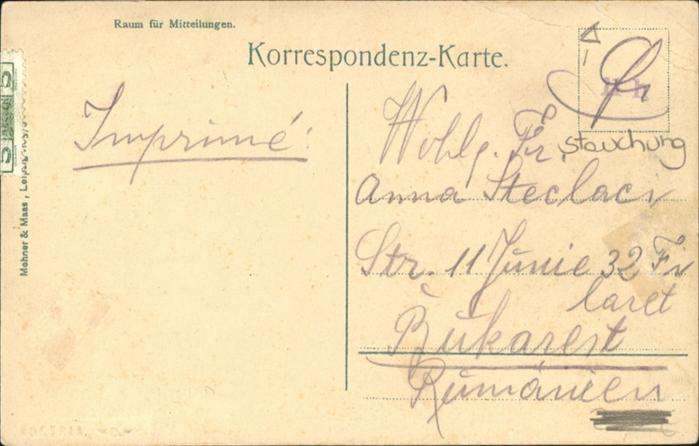 Raum für Mitteilungen.
Korrespondenz-Karte.
Imprimé!
Wohlg. Fr
stauchung
Anna Steclaci
Str. 11 Junie 32 Fi
laret
Bukarest
Rumänien
Mehner & Maas, Leipzig